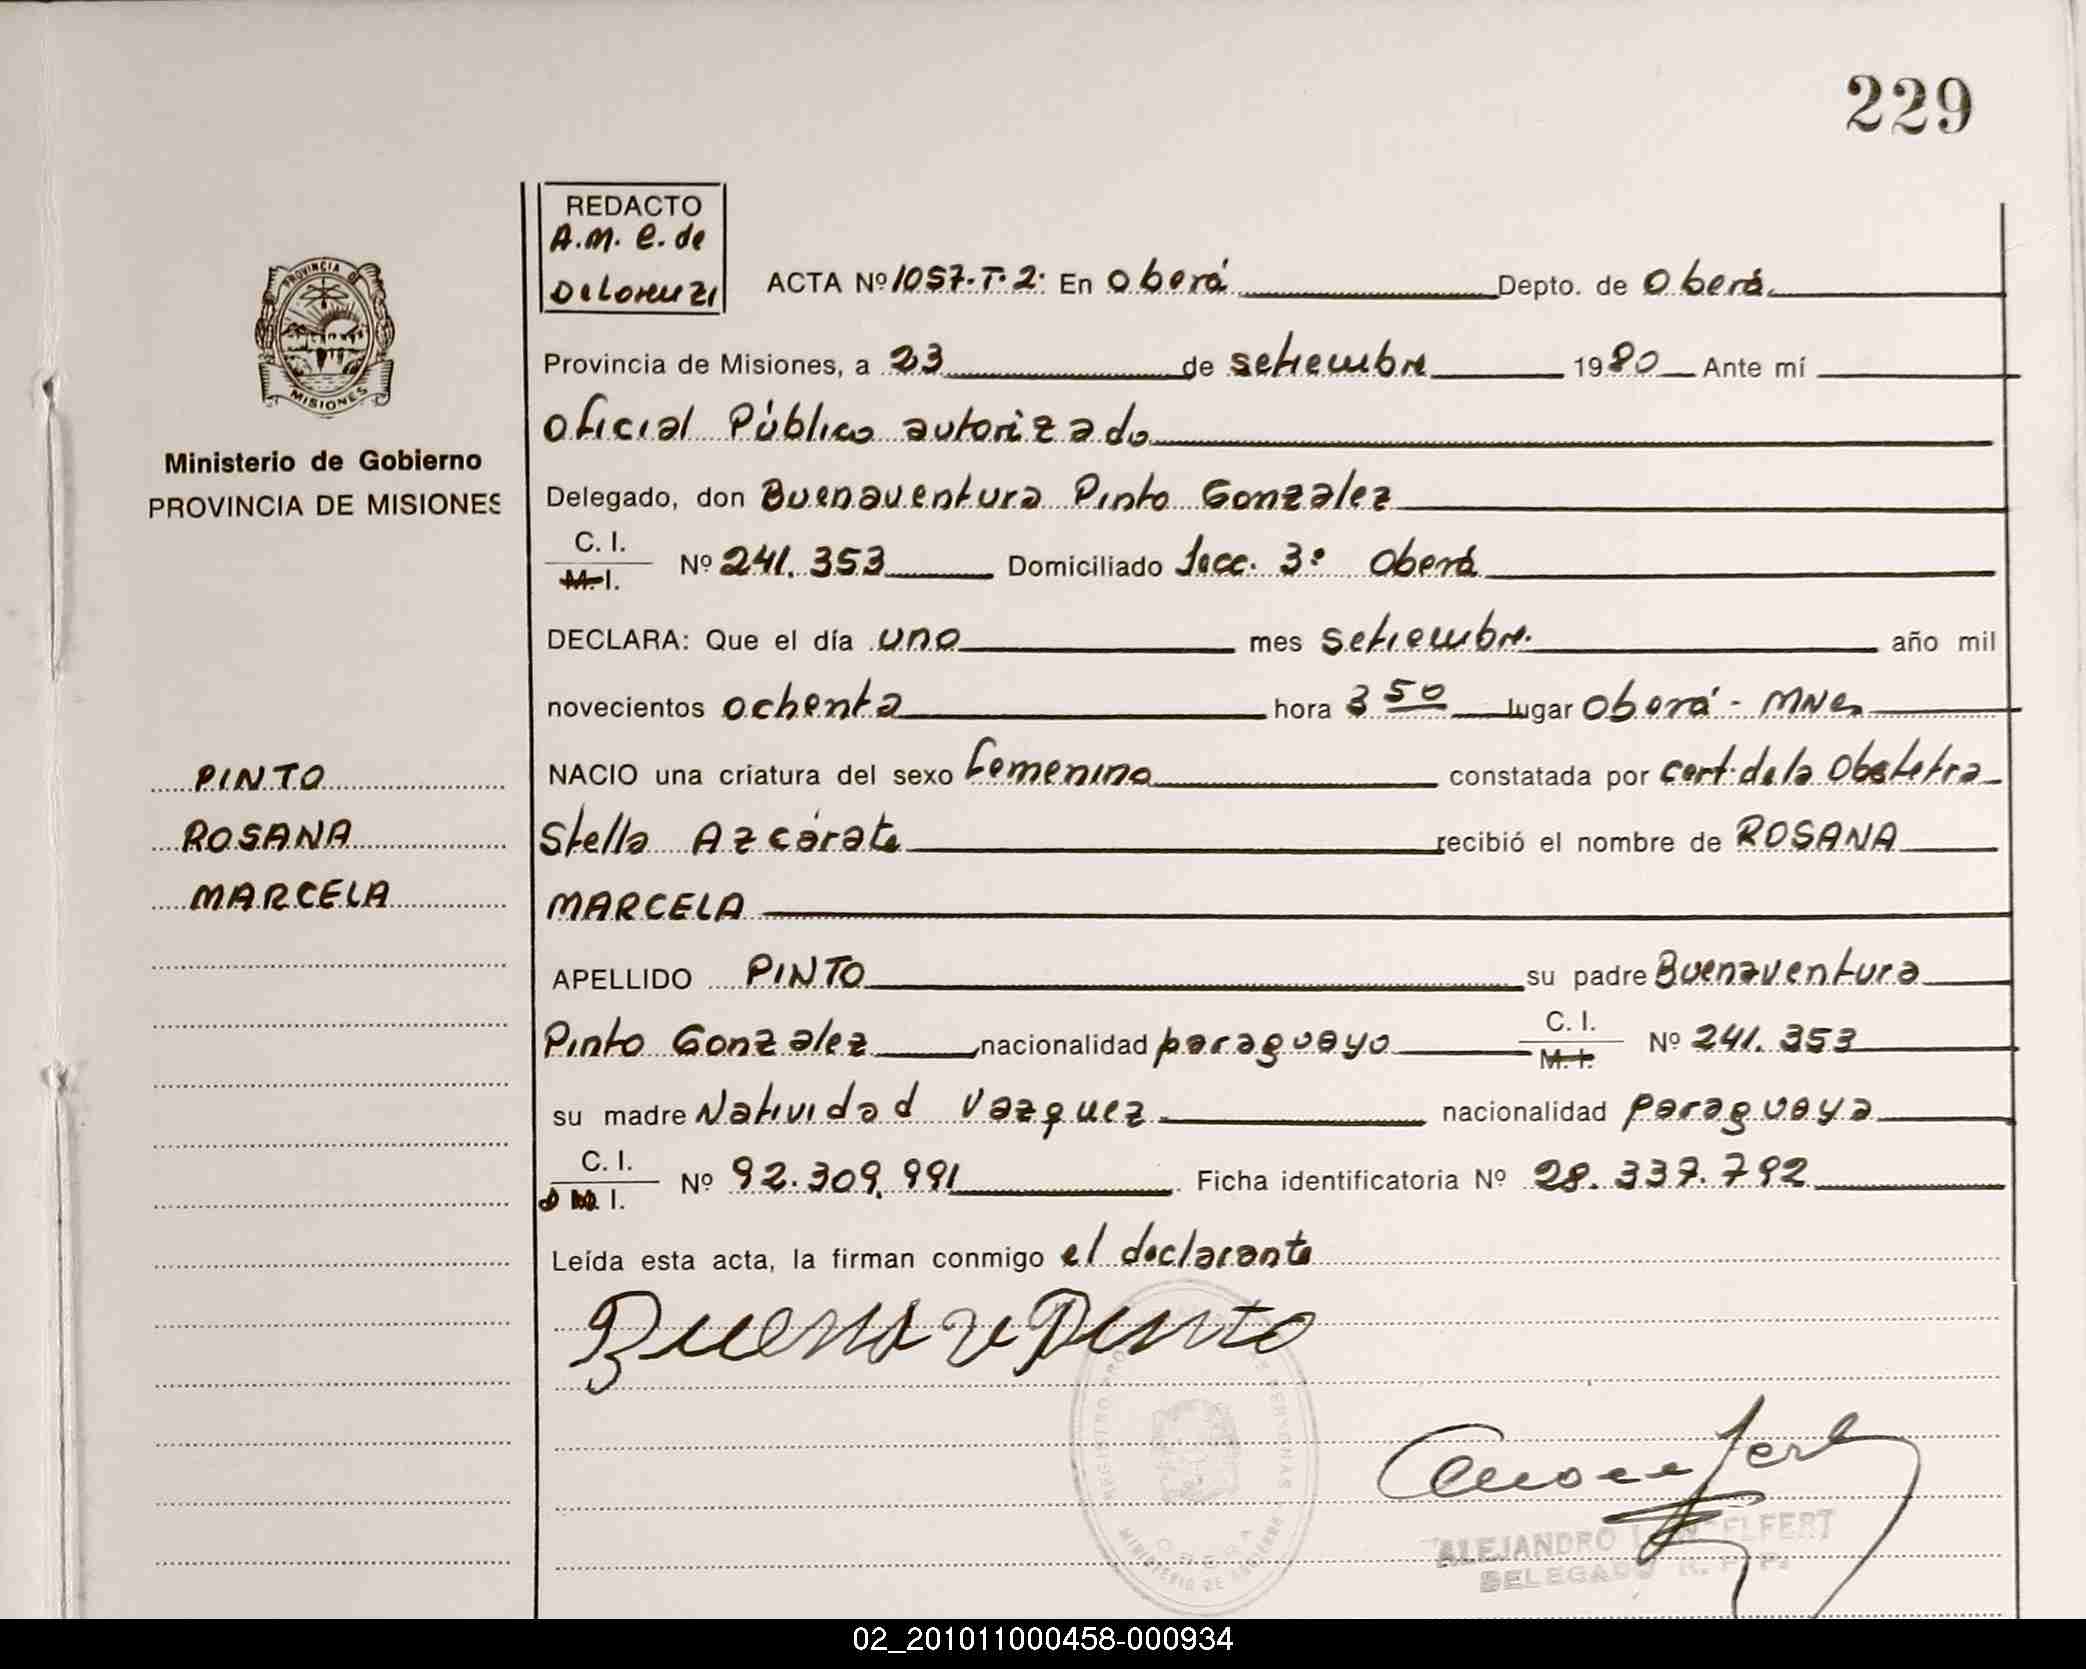 229
REDACTO
A.M. E. de
De Lorenzi
ACTA Nº 1057-T-2: En Oberá Depto. de Oberá
PROVINCIA DE
MISIONES
Provincia de Misiones, a 23 de setiembre 1980 Ante mí
Oficial Público autorizado
Ministerio de Gobierno
PROVINCIA DE MISIONES
Delegado, don Buenaventura Pinto Gonzalez
C. I.
M. I. Nº 241.353 Domiciliado Secc. 3º Oberá
DECLARA: Que el día uno mes setiembre año mil
novecientos ochenta hora 3 50 lugar Oberá - Mnes
PINTO
NACIO una criatura del sexo femenino constatada por cert. de la Obstetra
ROSANA
Stella Azcárate recibió el nombre de ROSANA
MARCELA
MARCELA
APELLIDO PINTO su padre Buenaventura
Pinto Gonzalez nacionalidad paraguayo C. I. M. I. Nº 241.353
su madre Natividad Vazquez nacionalidad paraguaya
C. I. I. Nº 92.309.991 Ficha identificatoria Nº 28.337.792
Leída esta acta, la firman conmigo el declarante
Buenav Pinto
REGISTRO PERSONAS
MINISTERIO DE GOBIERNO
OBERA
ALEJANDRO
DELEGADO R. P. P.
02_201011000458-000934